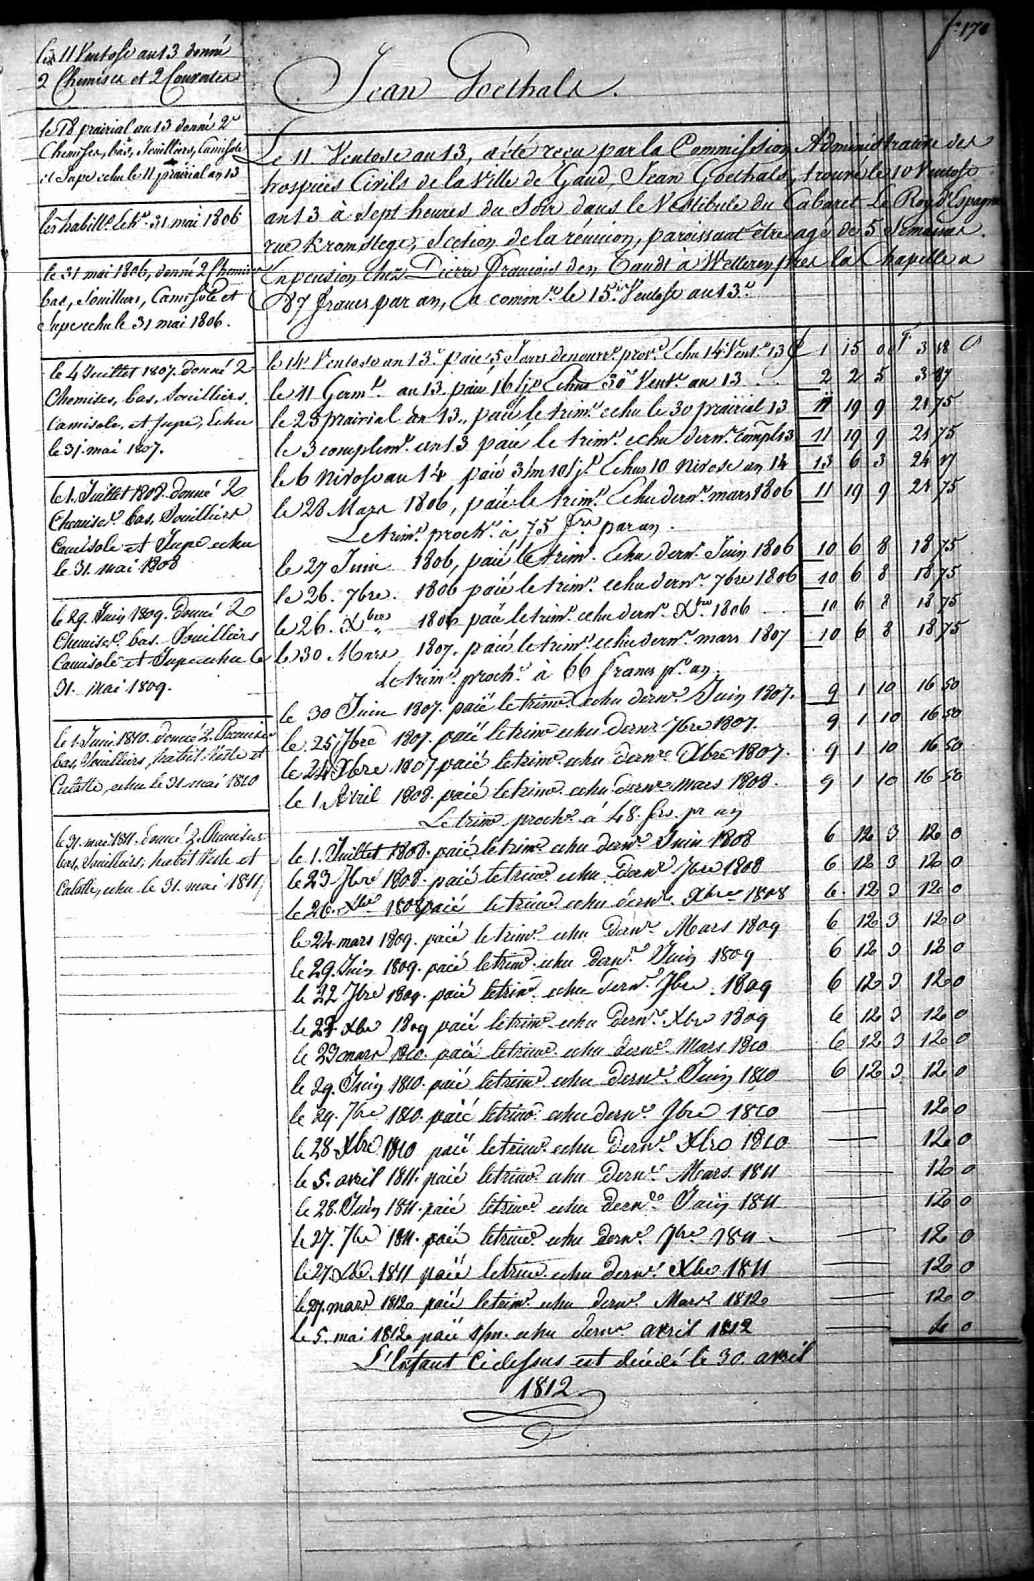 fo 170
Jean Goethals.
Le 11 Ventose an 13, a été reçu par la Commission Administrative des
hospices Civils de la Ville de Gand, Jean Goethals, trouvé le 10 Ventose
an 13 à Sept heures du Soir dans le Vestibule du Cabaret Le Roy d'Espagne
rue Kromstege, Section de la réunion, paroissant être agé de 5 Semaines.
En pension chez Pierre Francois den Tandt à Wetteren près la Chapelle a
87 francs par an, a commcé le 15 Ventose an 13.
le 11 Ventose an 13 donné
2 Chemises et 2 Couvertes
le 18 prairial an 13 donné 2
Chemises, bas, Souilliers, Camisole
et Jupe echu le 11 prairial an 13
les habillts echt 31 mai 1806
le 31 mai 1806, donné 2 Chemises
bas, Souilliers, Camisole et
Jupe echu le 31 mai 1806.
le 4 Juillet 1807. donné 2
Chemises, bas, Souilliers,
camisole, et Jupe, Echu
le 31 mai 1807.
le 1. Juillet 1808. donné 2
Chemises bas, Souilliers
Camisole et Jupe echu
le 31. mai 1808
le 29. Juin 1809. Donné 2
Chemises bas. Souilliers
Camisole et Jupe echu le
31. mai 1809.
le 1. Juin 1810. donné 2 Chemises
bas, Souilliers, habit Veste et
Culotte, echu le 31 mai 1810
le 31. mai 1811. donné 2. Chemises
bas, Souilliers, habit Veste et
Culotte, echu le 31. mai 1811,
le 14 Ventose an 13. paié 5 Jours de nourre provre Echu 14 Vente 13 1 15 0 3 18
le 11 Germl an 13. paié 16 Js Echus 30 Vente an 13 2 2 5 3 87
le 25 prairial an 13., paié le trime echu le 30 prairial 13 11 19 9 21 75
le 3 complemre an 13 paié le trime echu derne Compl 13 11 19 9 21 75
le 6 Nivose an 14, paié 3/m 10/js Echus 10 Nivose an 14 13 6 3 24 17
le 28 Mars 1806, paié le trime Echu derne mars 1806 11 19 9 21 75
Le trime proche à 75 frs par an.
le 27 Juin 1806, paié le trime Echu derne Juin 1806 10 6 8 18 75
le 26. 7bre. 1806 paié le trime echu derne 7bre 1806 10 6 8 18 75
le 26. Xbre 1806 paié le trime echu derne Xbre 1806 10 6 8 18 75
le 30 Mars 1807. paié le trime echu derne mars 1807 10 6 8 18 75
le trime proche à 66 francs pr an.
le 30 Juin 1807. paié le trime echu derne Juin 1807. 9 1 10 16 50
le 25 7bre 1807. paié le trime echu derne 7bre 1807. 9 1 10 16 50
le 24 Xbre 1807 paié le trime echu derne Xbre 1807. 9 1 10 16 50
le 1 Avril 1808. paié le trime echu derne mars 1808. 9 1 10 16 50
Le trime proche à 48. frs. pr an
le 1. Juillet 1808. paié le trime echu derne Juin 1808 6 12 3 12 0
le 23 7bre 1808. paié le trime echu derne 7bre 1808 6 12 3 12 0
le 26. Xbre 1808 paié le trime echu derne Xbre 1808 6 12 3 12 0
le 24 mars 1809. paié le trime echu derne Mars 1809 6 12 3 12 0
le 29. Juin 1809. paié le trime echu derne Juin 1809 6 12 3 12 0
le 22 7bre 1809. paié le trime echu derne 7bre. 1809 6 12 3 12 0
le 22 Xbre 1809 paié le trime echu derne Xbre 1809 6 12 3 12 0
le 23 mars 1810. paié le trime echu derne Mars 1810 6 12 3 12 0
le 29. Juin 1810. paié le trime echu derne Juin 1810 6 12 3 12 0
le 29. 7bre 1810. paié le trime echu derne 7bre 1810 12 0
le 28 Xbre 1810 paié le trime echu derne Xbre 1810 12 0
le 5. avril 1811. paié le trime echu derne Mars 1811 12 0
le 28. Juin 1811. paié le trime echu derne Juin 1811 12 0
le 27. 7bre 1811. paié le trime echu derne 7bre 1811 12 0
le 27. Xbre. 1811 paié le trime echu derne Xbre 1811 12 0
le 27. mars 1812 paié le trime echu derne Mars 1812 12 0
le 5. mai 1812 paié 1/m. echu derne avril 1812 4 0
L'Enfant Cidessus est décédé le 30 avril
1812